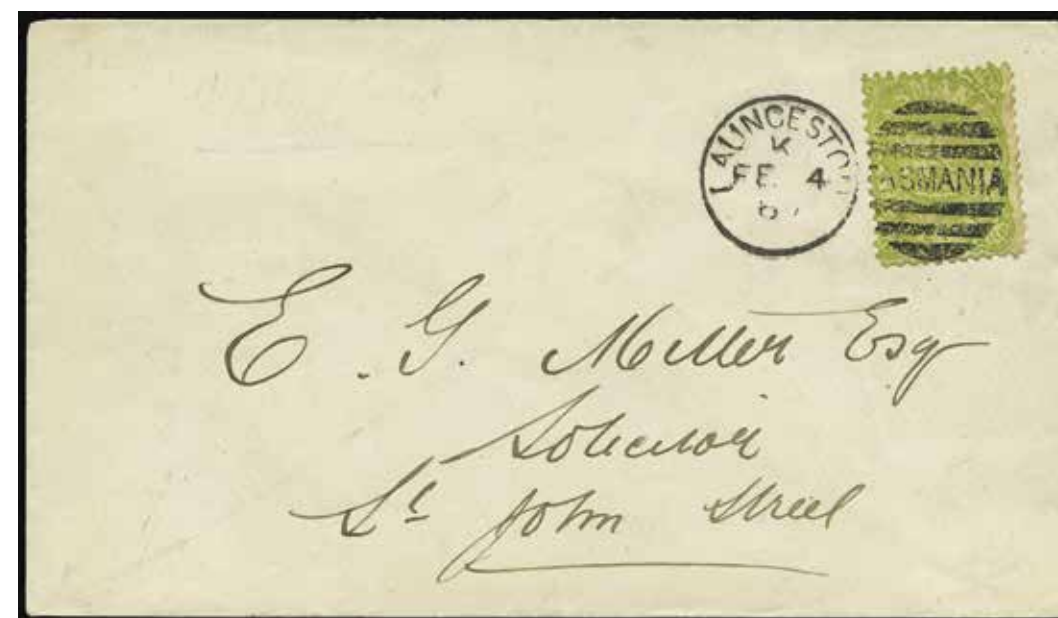 LAUNCESTON
K
FE 4
TASMANIA
E. G. Miller Esq
Solicitor
St John Street